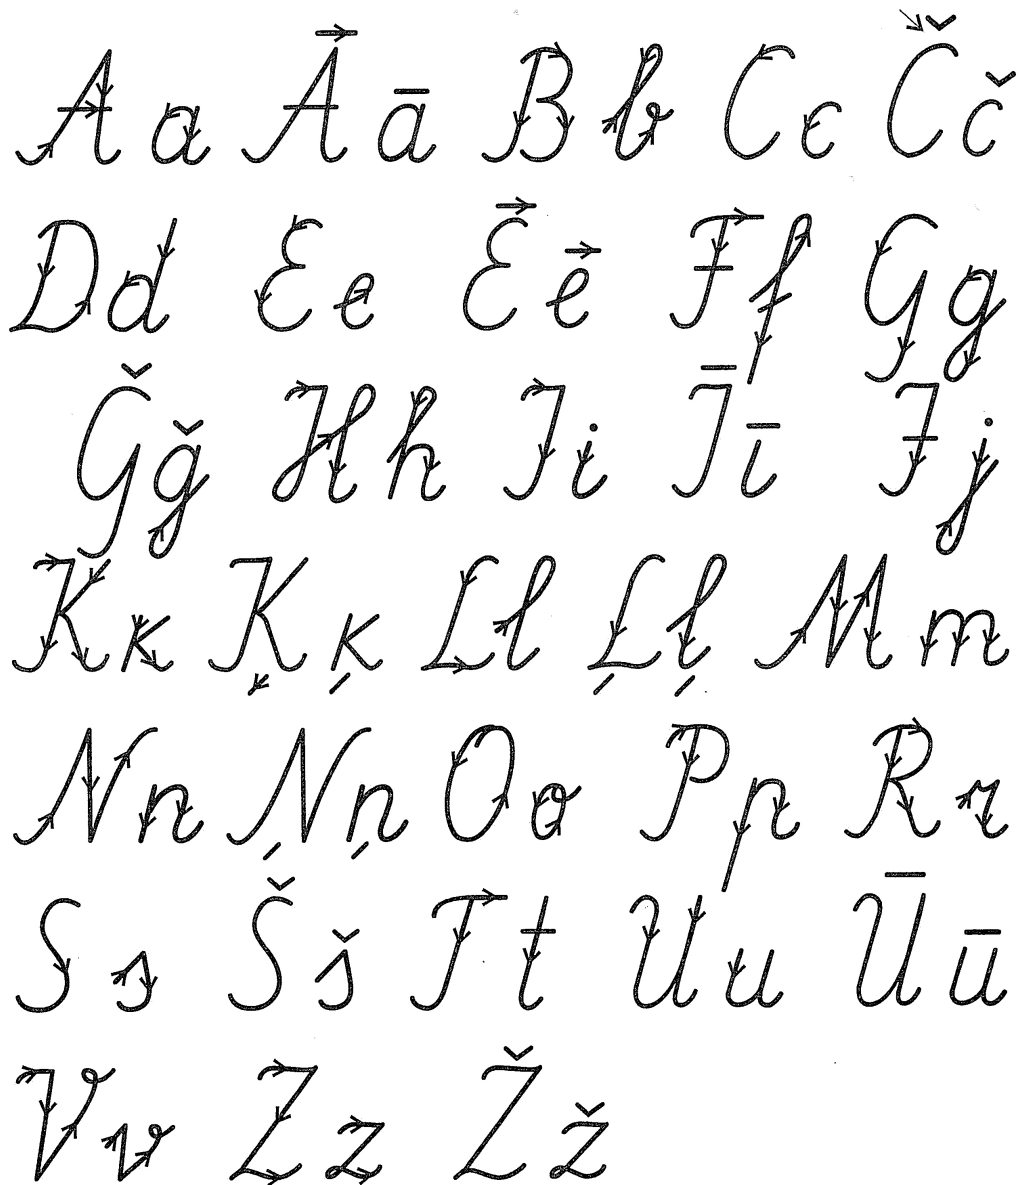 A a Ā ā B b C c Č č
D d E e Ē ē F f G g
Ǧ ǧ H h I i Ī ī J j
K k Ķ ķ L l Ļ ļ M m
N n Ņ ņ O o P p R r
S s Š š T t U u Ū ū
V v Z z Ž ž